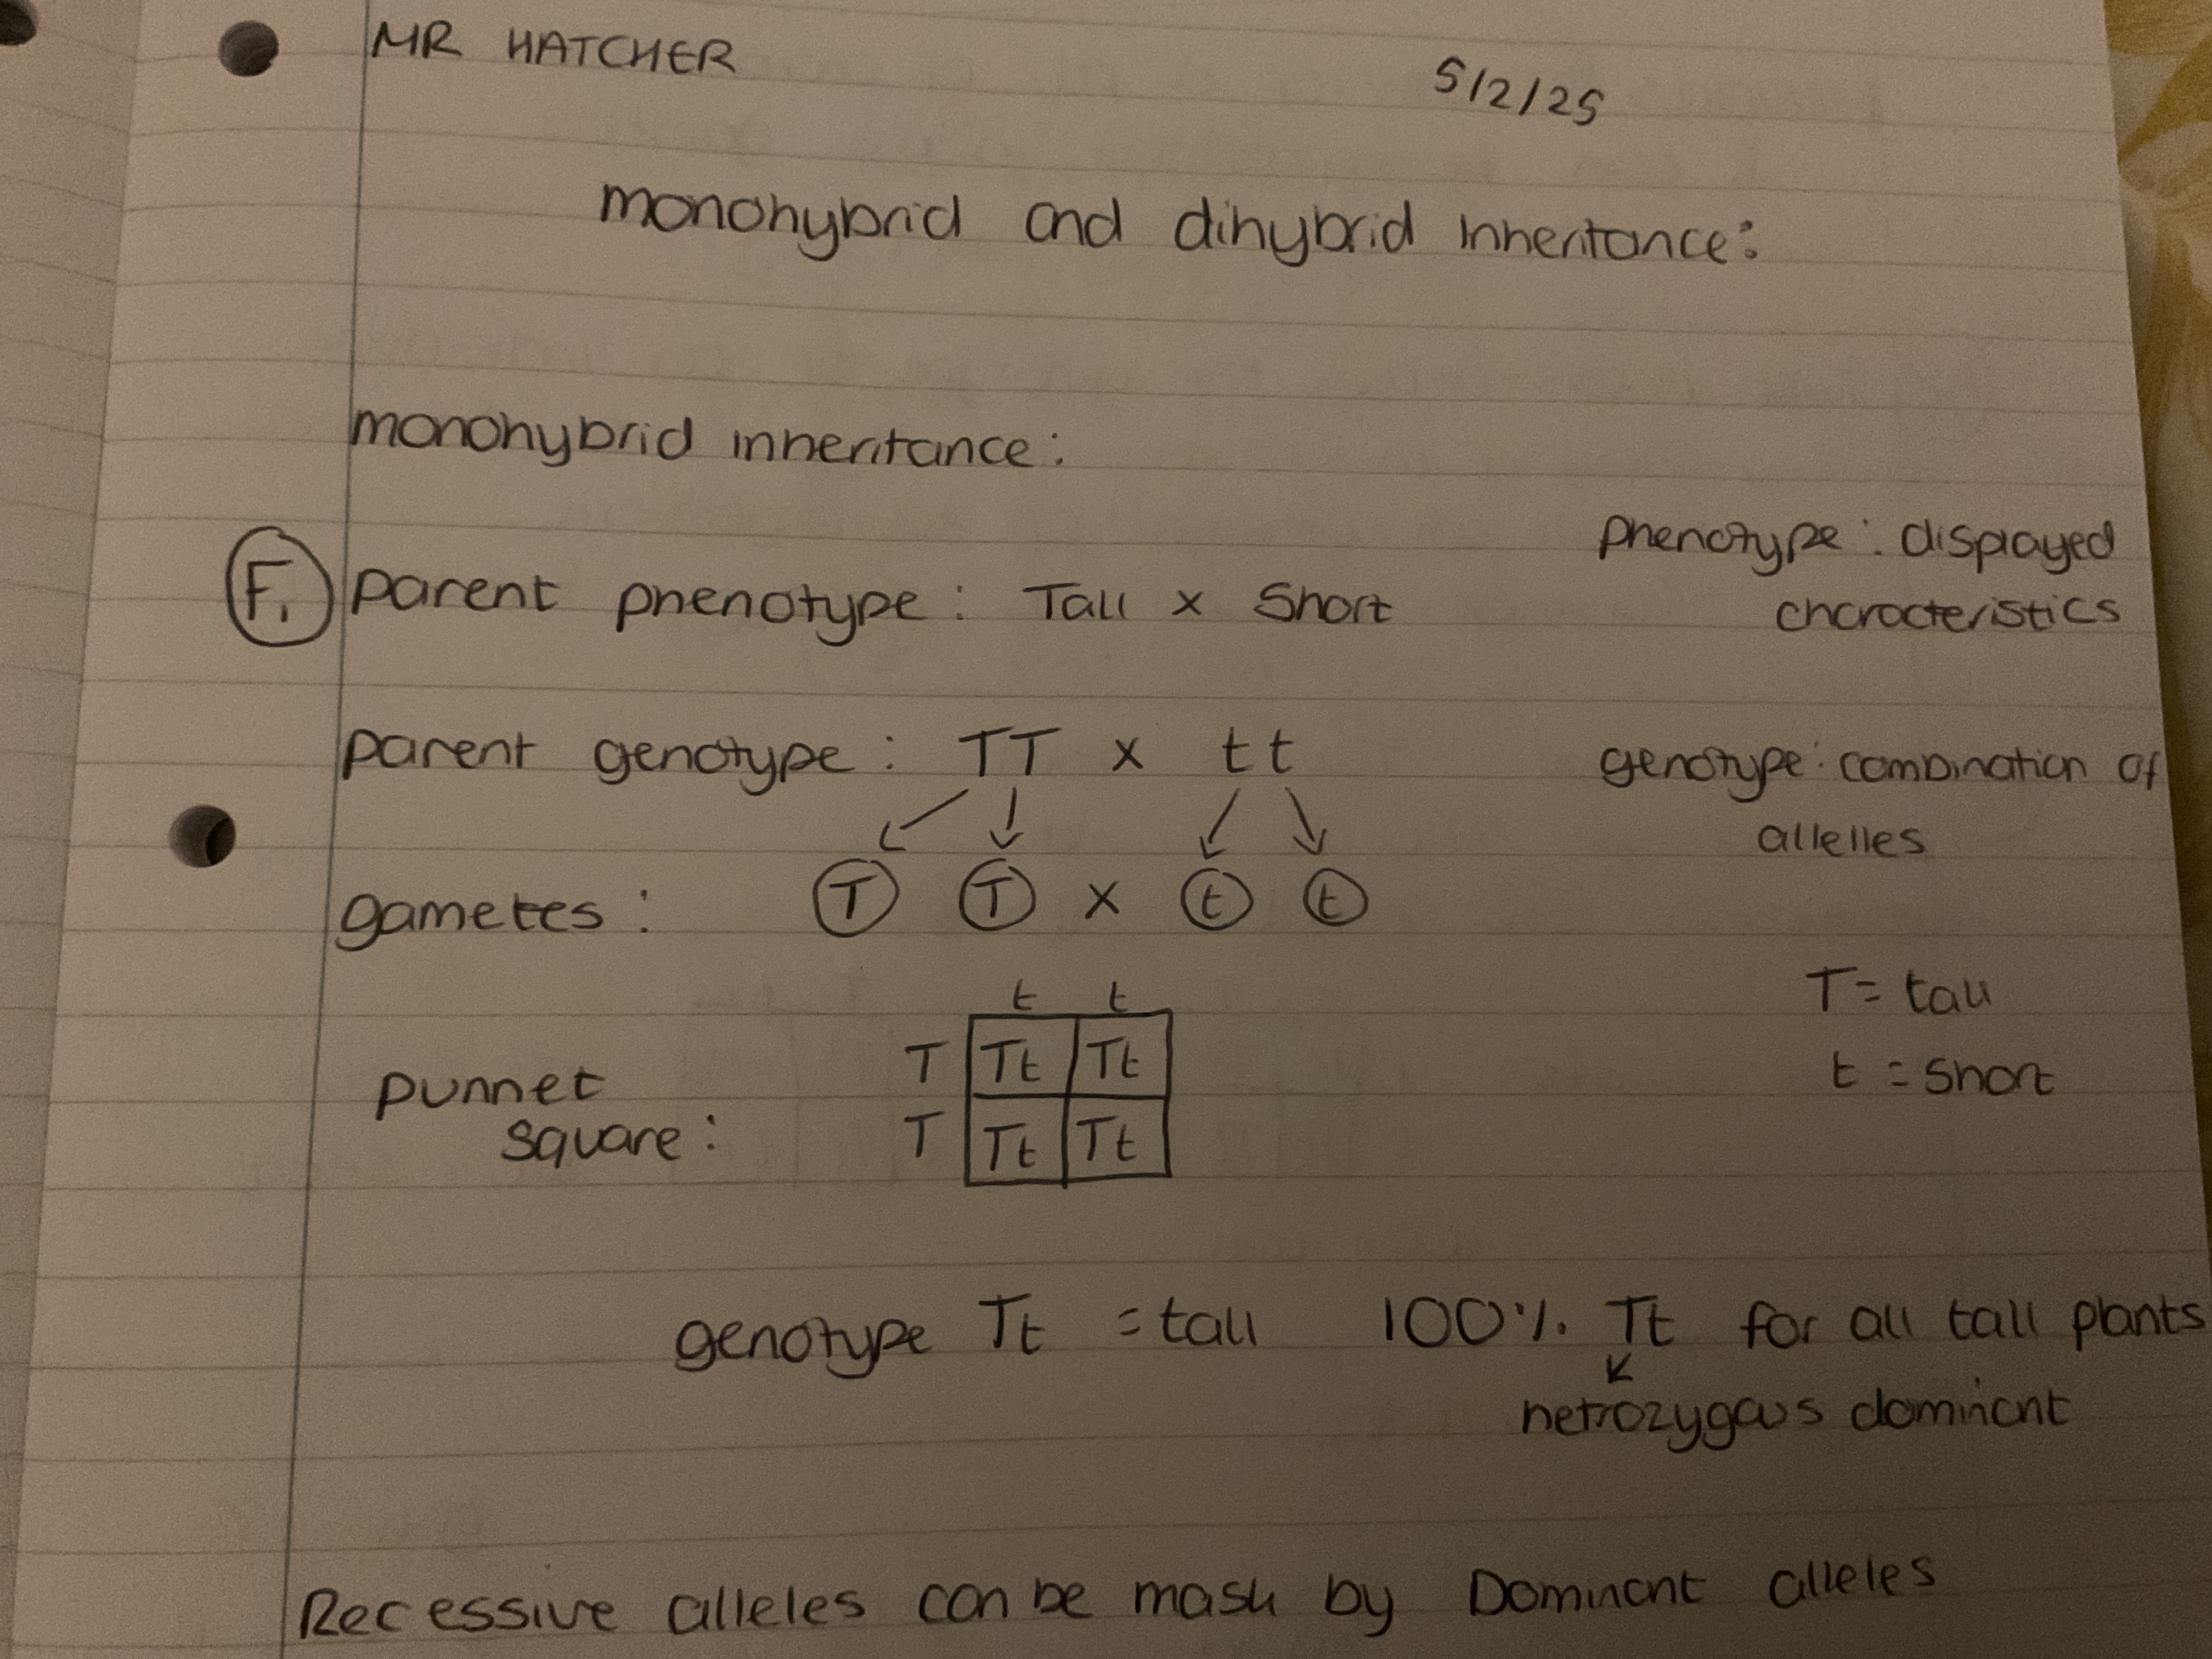 MR HATCHER
5/2/25
monohybrid and dihybrid inheritance:
monohybrid inheritance:
phenotype: displayed
characteristics
F1 parent phenotype: Tall x Short
parent genotype: TT x tt
genotype: combination of
allelles
gametes: T T x t t
T = tall
t = short
t t
T Tt Tt
punnet
square:
T Tt Tt
genotype Tt = tall 100% Tt for all tall plants
hetrozygous dominant
Recessive alleles can be mask by Dominant alleles